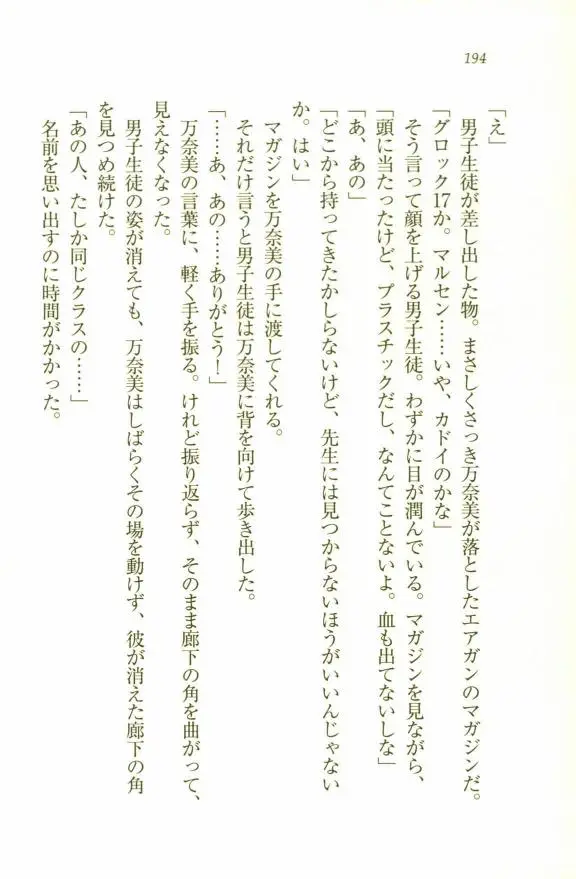 194
「え」
男子生徒が差し出した物。まさしくさっき万奈美が落としたエアガンのマガジンだ。
「グロック17か。マルセン……いや、カドイのかな」
そう言って顔を上げる男子生徒。わずかに目が潤んでいる。マガジンを見ながら、
「頭に当たったけど、プラスチックだし、なんてことないよ。血も出てないしな」
「あ、あの」
「どこから持ってきたかしらないけど、先生には見つからないほうがいいんじゃない
か。はい」
マガジンを万奈美の手に渡してくれる。
それだけ言うと男子生徒は万奈美に背を向けて歩き出した。
「……あ、あの……ありがとう！」
万奈美の言葉に、軽く手を振る。けれど振り返らず、そのまま廊下の角を曲がって、
見えなくなった。
男子生徒の姿が消えても、万奈美はしばらくその場を動けず、彼が消えた廊下の角
を見つめ続けた。
「あの人、たしか同じクラスの……」
名前を思い出すのに時間がかかった。